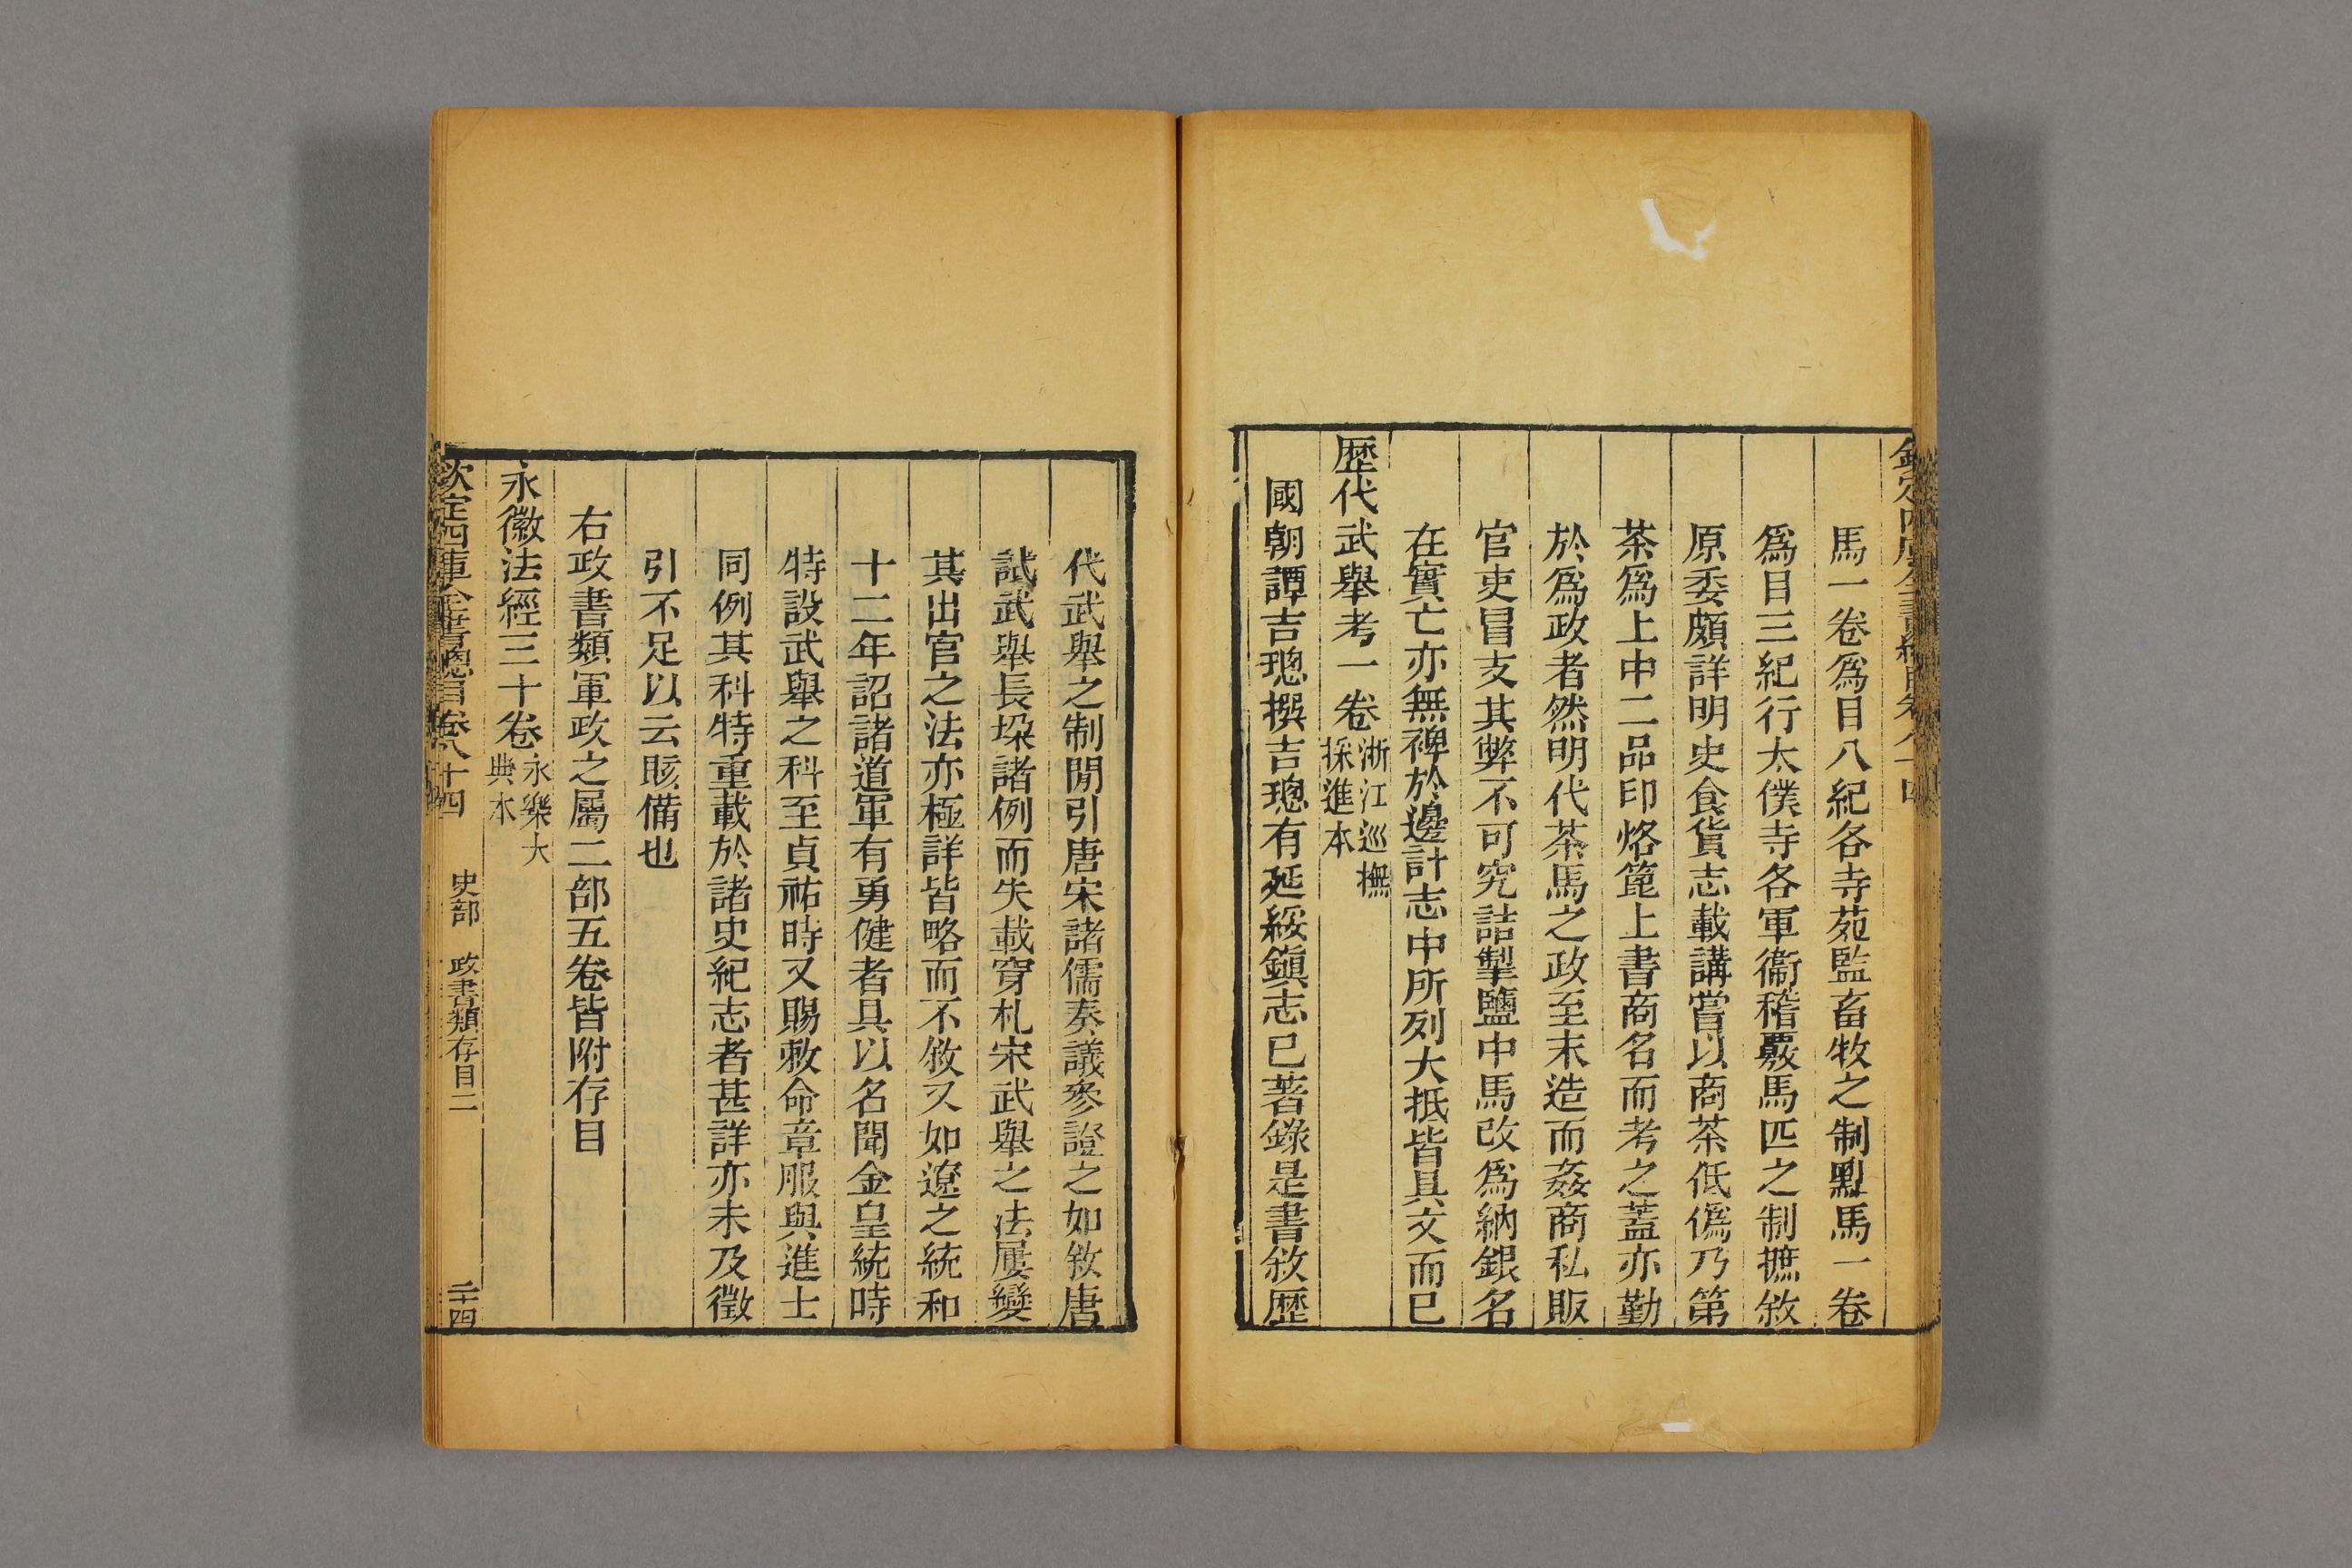 馬一卷爲目八紀各寺苑監畜牧之制點馬一卷
爲目三紀行太僕寺各軍衞稽覈馬匹之制摭敘
原委頗詳明史食貨志載講嘗以商茶低僞乃第
茶爲上中二品印烙篦上書商名而考之蓋亦勤
於爲政者然明代茶馬之政至末造而姦商私販
官吏冒支其弊不可究詰掣鹽中馬改爲納銀名
在實亡亦無裨於邊計志中所列大抵皆具文而已
歷代武舉考一卷浙江巡撫
採進本
國朝譚吉璁撰吉璁有延綏鎭志已著錄是書敘歷
代武舉之制閒引唐宋諸儒奏議參證之如敘唐
試武舉長垜諸例而失載穿札宋武舉之法屢變
其出官之法亦極詳皆略而不敘又如遼之統和
十二年詔諸道軍有勇健者具以名聞金皇統時
特設武舉之科至貞祐時又賜敕命章服與進士
同例其科特重載於諸史紀志者甚詳亦未及徵
引不足以云賅備也
右政書類軍政之屬二部五卷皆附存目
永徽法經三十卷永樂大
典本
欽定四庫全書總目卷八十四 史部 政書類存目二 二十四